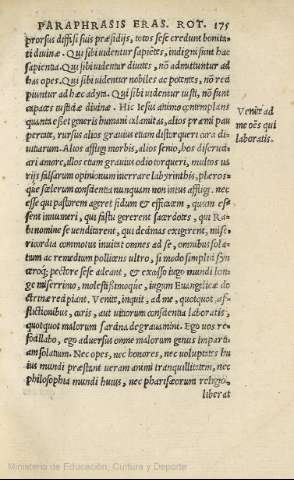 PARAPHRASIS ERAS. ROT. 175
prorsus diffisi suis præsidijs, totos sese credunt bonita-
ti diuinæ. Qui sibi uidentur sapiētes, indigni sunt hac
sapientia. Qui sibi uidentur diuites, nō admittuntur ad
has opes. Qui sibi uidentur nobiles ac potentes, nō reci
piuntur ad hæc adyta. Qui sibi uidentur iusti, nō sunt
capaces iustitiæ diuinæ. Hic Iesus animo contemplans
quanta esset generis humani calamitas, alios præmi pau
pertate, rursus alios grauius etiam distorqueri cura di-
uitiarum. Alios affligi morbis, alios senio, hos discru-
ari amore, illos etiam grauius odio torqueri, multos ua
rijs falsarum opinionum inerrare labyrinthis, pleros-
que scelerum conscientia nunquam non intus affligi. nec
esse qui pastorem ageret fidum & efficacem, quum es-
sent innumeri, qui fastu gererent sacerdotes, qui Ra-
bi nomine se uenditarent, qui decimas exigerent, mise-
ricordia commotus inuitat omnes ad se, omnibus sola-
tium ac remedium pollicens ultro, si modo simplici syn
ceroq; pectore sese adeant, & excusso iugo mundi lon-
ge miserrimo, molestissimoque, iugum Euangelicæ do
ctrinæ recipiant. Venite, inquit, ad me, quotquot af-
flictionibus, curis, aut uitiorum conscientia laboratis,
quotquot malorum sarcina degrauamini. Ego uos re-
focillabo, ego aduersus omne malorum genus imparti-
am solatium. Nec opes, nec honores, nec uoluptates hu
ius mundi præstant ueram animi tranquillitatem, nec
philosophia mundi huius, nec pharisæorum religio,
liberat
Venite ad
me oēs qui
laboratis.
Ministerio de Educación, Cultura y Deporte